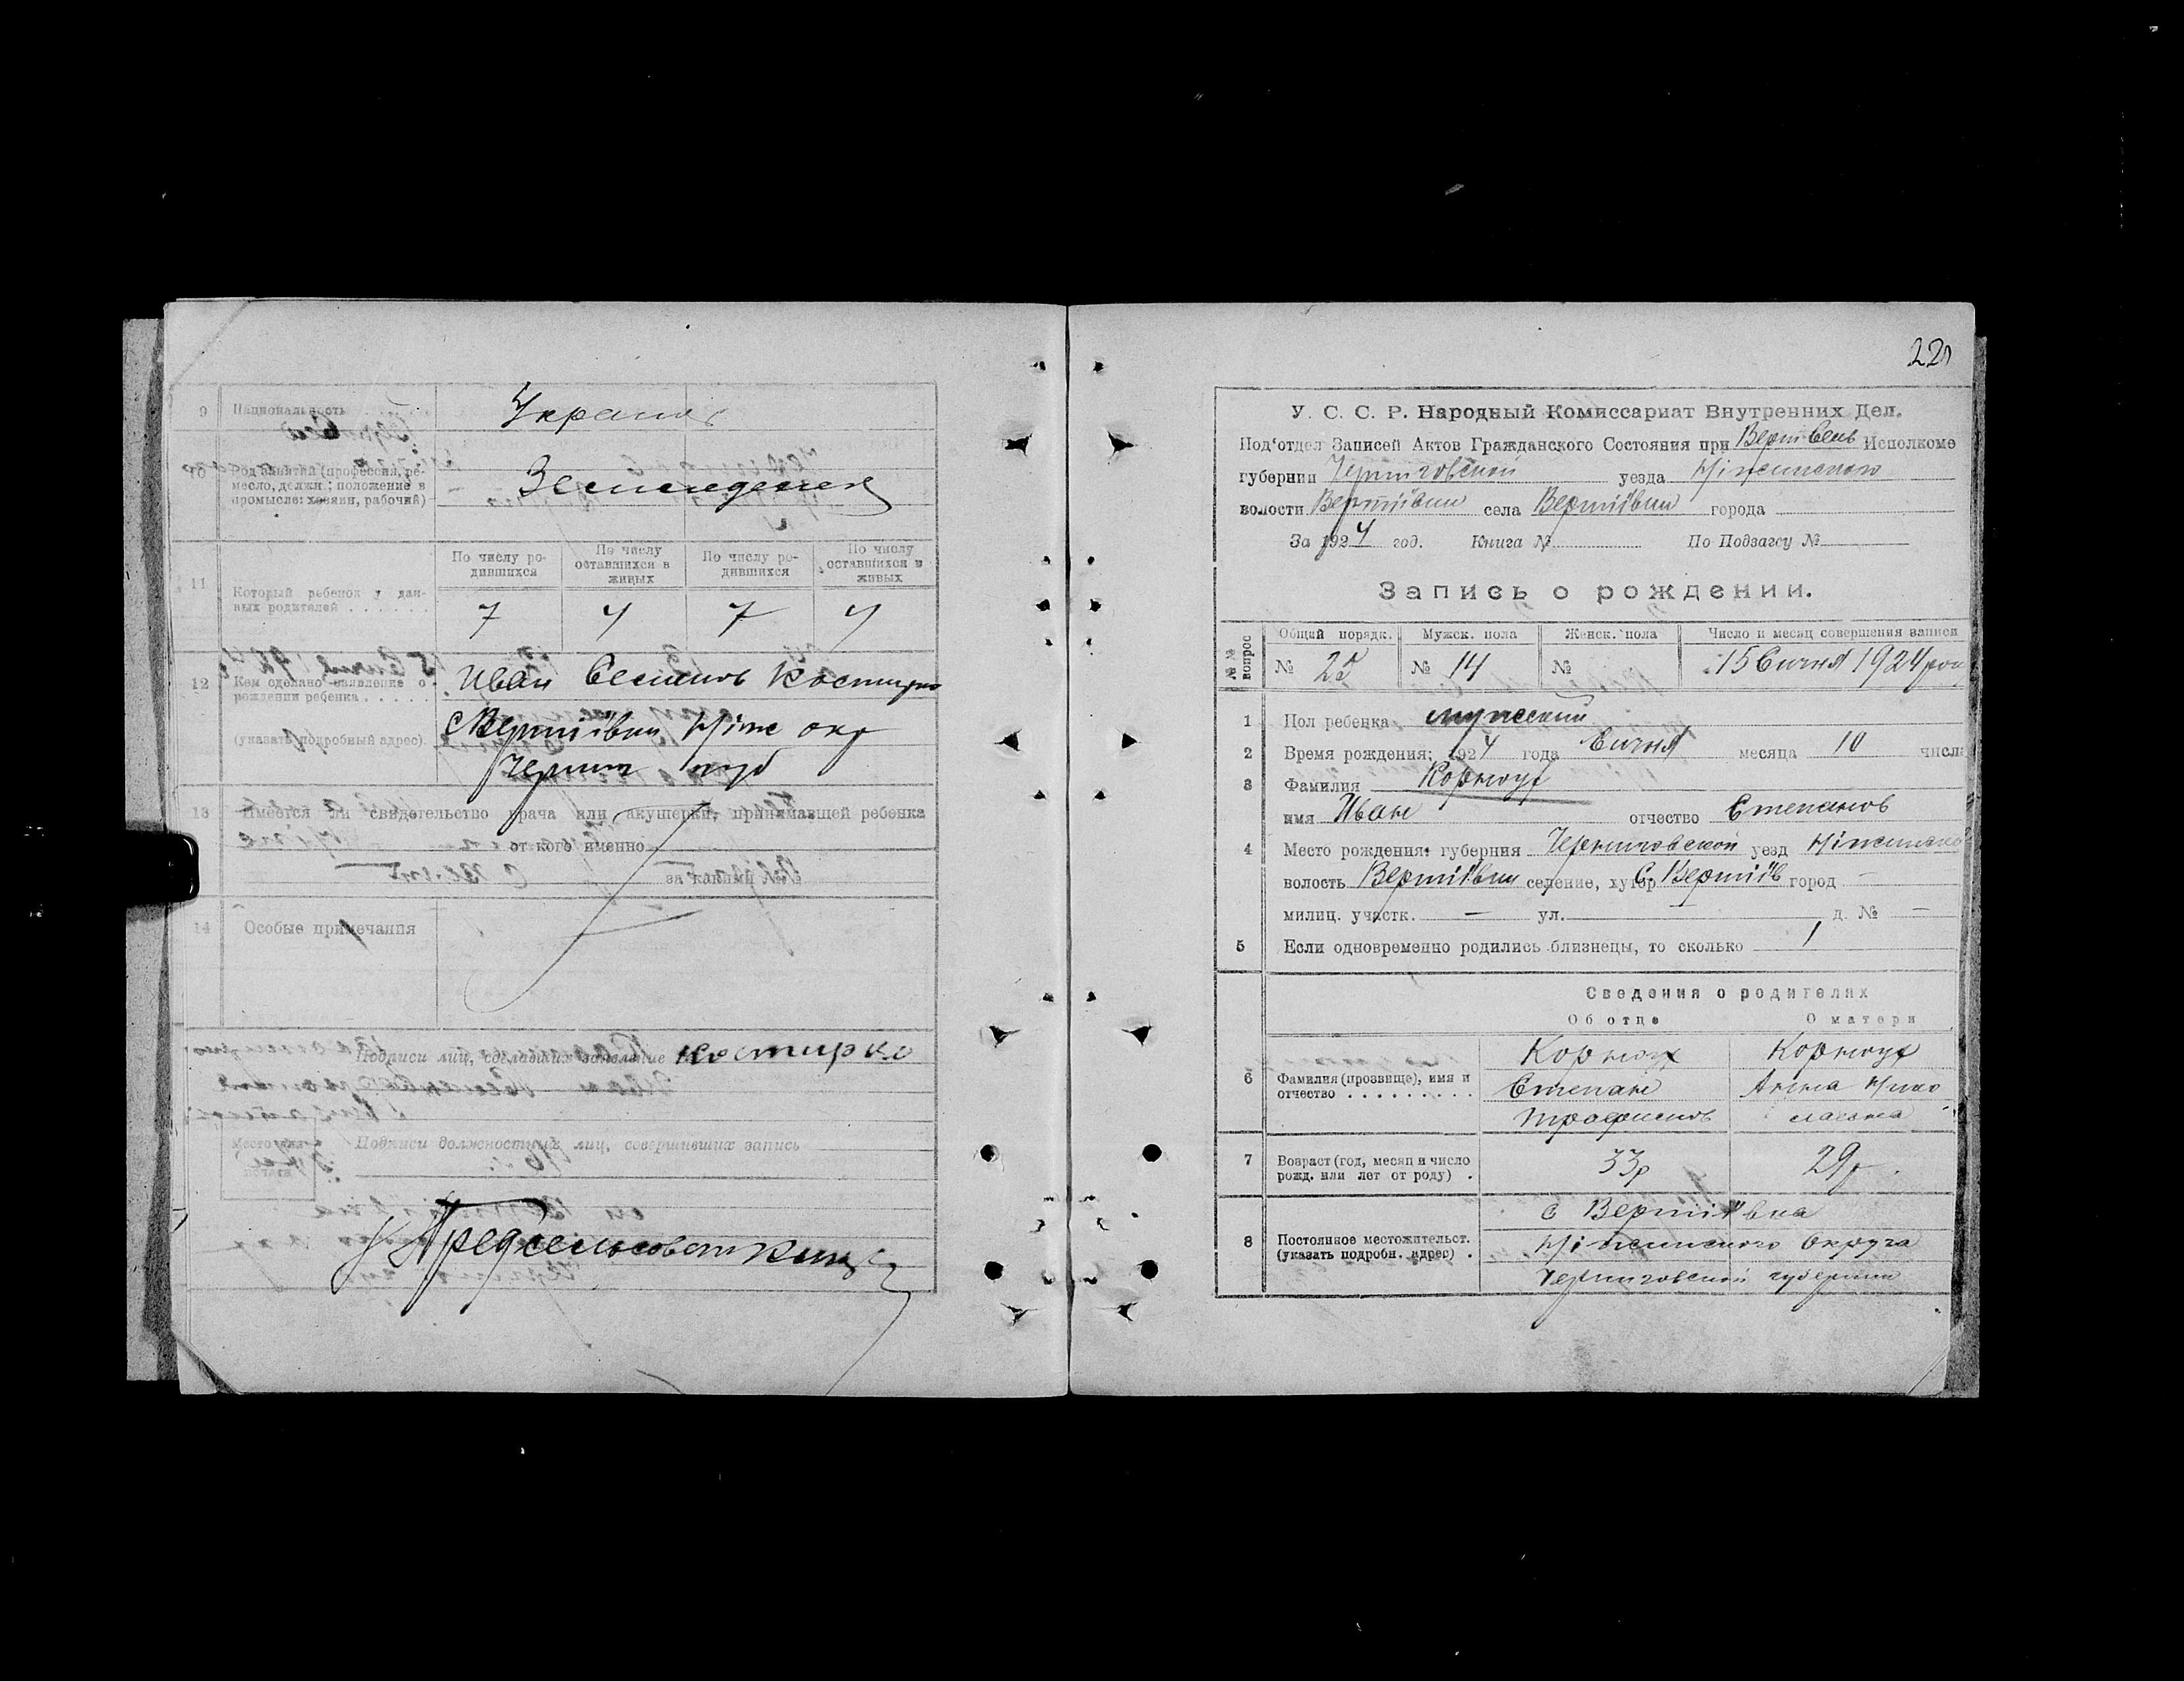 9 Национальность Украинс
10 Род занятий (профессия, ре-
месло, должн.; положение в
промысле: хозяин, рабочий)
Земледелец
11 Который ребенок у дан-
ных родителей
По числу ро-
дившихся
По числу
оставшихся в
живых
По числу ро-
дившихся
По числу
оставшихся в
живых
7 4 7 4
12 Кем сделано заявление о
рождении ребенка
(указать подробный адрес).
Иван Семенов Костирко
с Вертіївки Ніж окр
Черниг губ
13 Имеется ли свидетельство врача или акушерки, принимавшей ребенка
от кого именно
за каким №
14 Особые примечания
Подписи лиц, сделавших заявление Костирко
место для
печати
Подписи должностных лиц, совершивших запись
Предсельсовета
У. С. С. Р. Народный Комиссариат Внутренних Дел.
Под'отдел Записей Актов Гражданского Состояния при Исполкоме
губернии Черниговской уезда Ніжинского
волости Вертіївки села Вертіївки города
За 1924 год. Книга № По Подзагсу №
Запись о рождении.
№№ вопрос
Общий порядк. Мужск. пола Женск. пола Число и месяц совершения записи
№ 25 № 14 № 15 Січня 1924 року
1 Пол ребенка мужеский
2 Время рождения: 1924 года Січня месяца 10 числа
3 Фамилия Корнюх
имя Иван отчество Степанов
4 Место рождения: губерния Черниговской уезд Ніжинского
волость Вертіївки селение, хутор С. Вертіїв город —
милиц. участк. — ул. — д. № —
5 Если одновременно родились близнецы, то сколько 1
Сведения о родителях
Об отце О матери
6 Фамилия (прозвище), имя и
отчество
Корнюх Корнюх
Степан Анна Нико
Трофимов лаевна
7 Возраст (год, месяц и число
рожд. или лет от роду)
33р 29р.
8 Постоянное местожительст.
(указать подробн. адрес)
с Вертіївка
Ніжинского Округа
Черниговской губернии